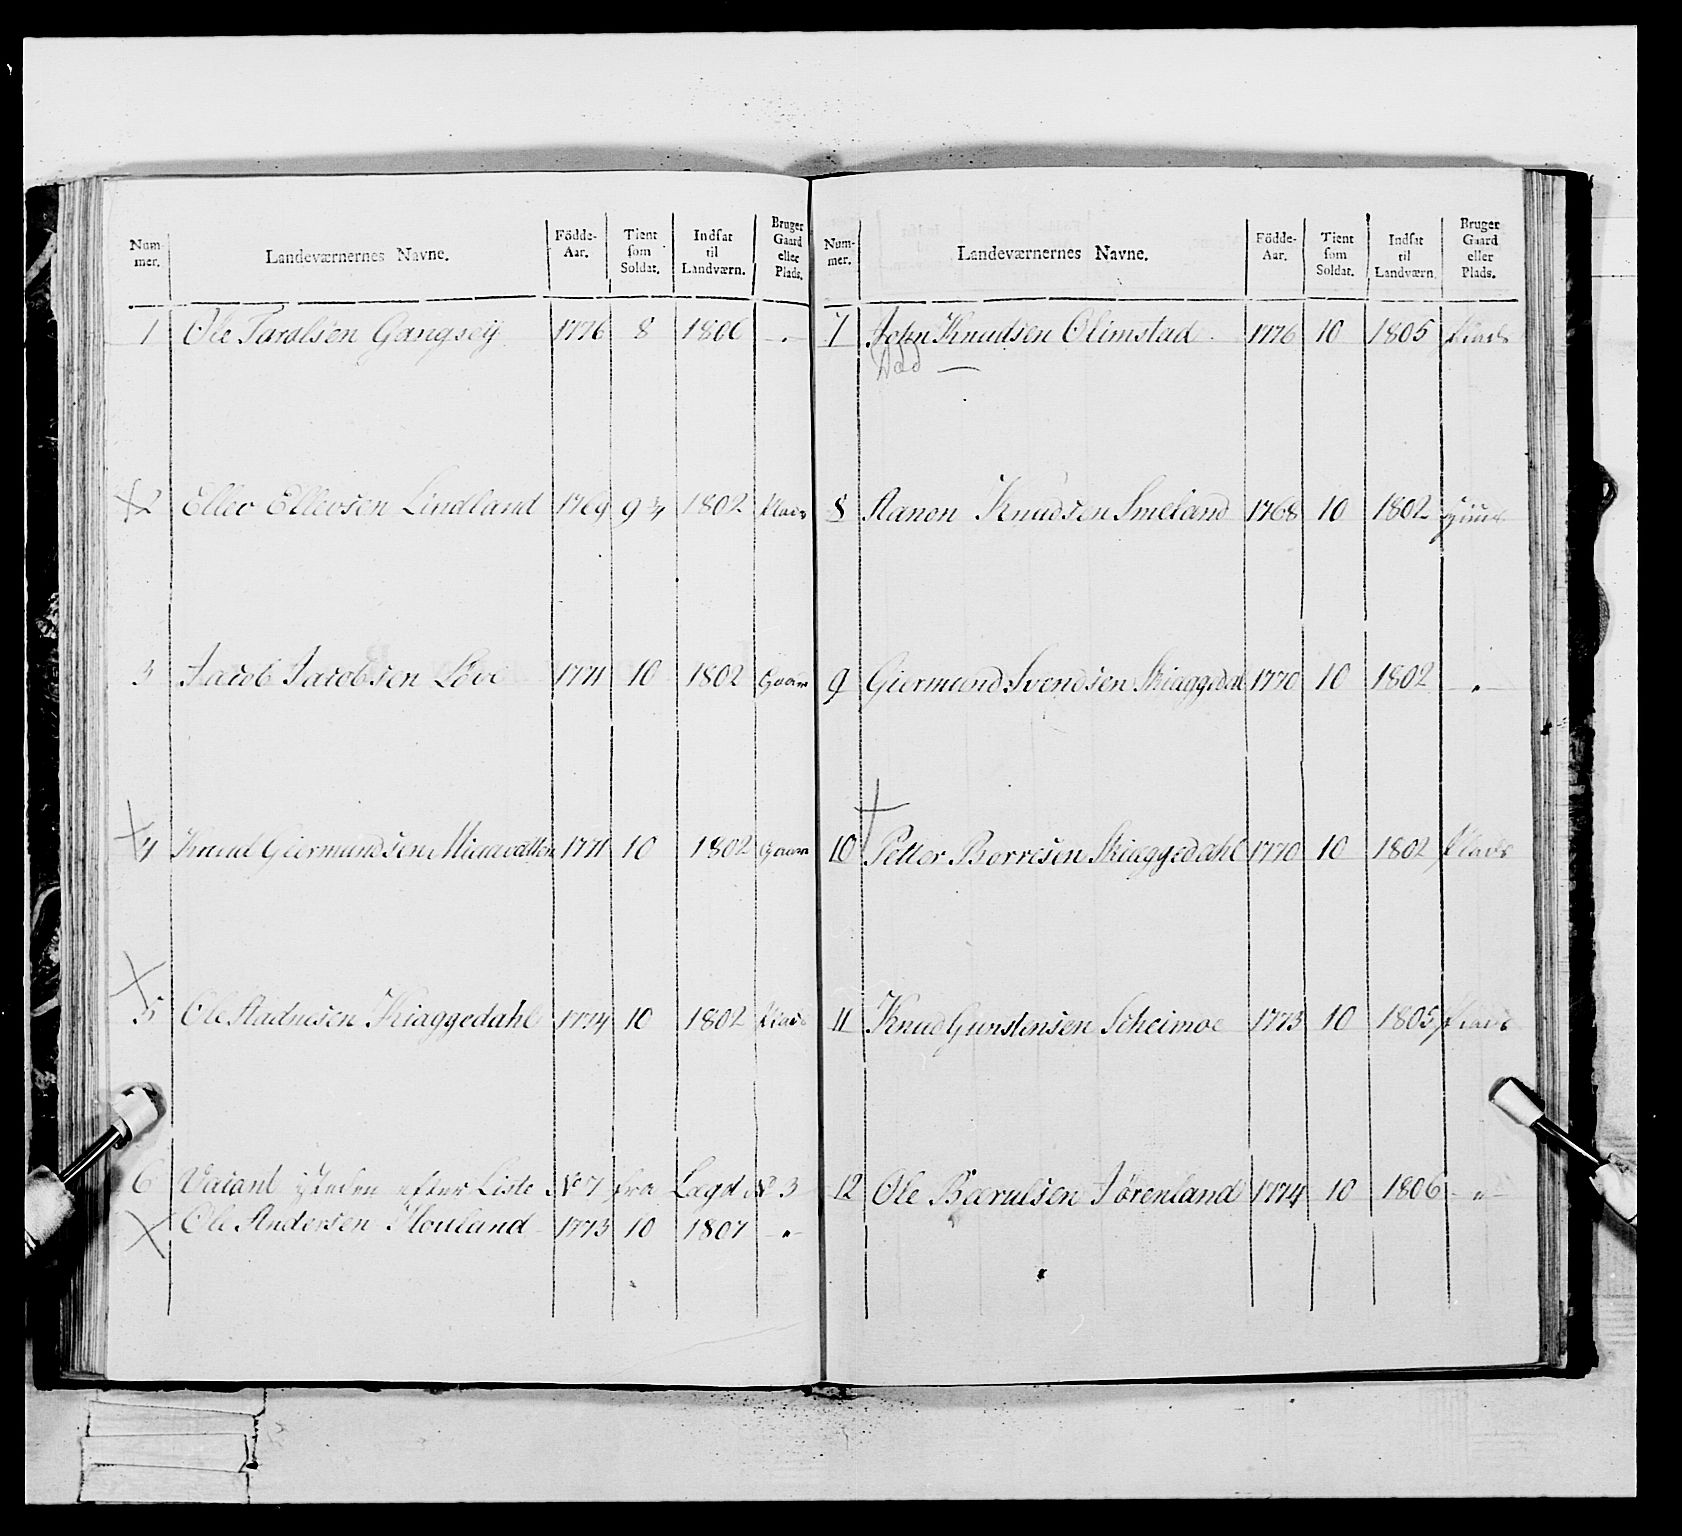 Num-mer. Landeværnernes Navne. Födde-Aar. Tient som Soldat. Indsat til Landværn. Bruger Gaard eller Plads.
1 Ole Taralsen Gangsøÿ 1776 8 1806 -"-
2 Ellev Ellevsen Lindland 1769 9 3/4 1802 Plads
3 Jacob Jacobsen Løve 1771 10 1802 Gaar
4 Knud Giermundsen 1771 10 1802 Gaar
5 Ole Aadnesen Skiaggedahl 1774 10 1802 Plads
6 Vacant isteden efter Liste No 7 fra Lægd No 3
Ole Andersen Houland 1773 10 1807 -"-
Num-mer. Landeværnernes Navne. Födde-Aar. Tient som Soldat. Indsat til Landværn. Bruger Gaard eller Plads.
7 John Knudsen Olimstad 1776 10 1805 Plads
Død —
8 Aanon Knudsen Smeland 1768 10 1802
9 Giermund Svendsen Skiaggedal 1770 10 1802 -"-
10 Petter Borresen Skiaggedahl 1770 10 1802 Plads
11 Knud Gunstensen Scheimoe 1773 10 1805 Plads
12 Ole Bærulsen Tørenland 1774 10 1806 -"-